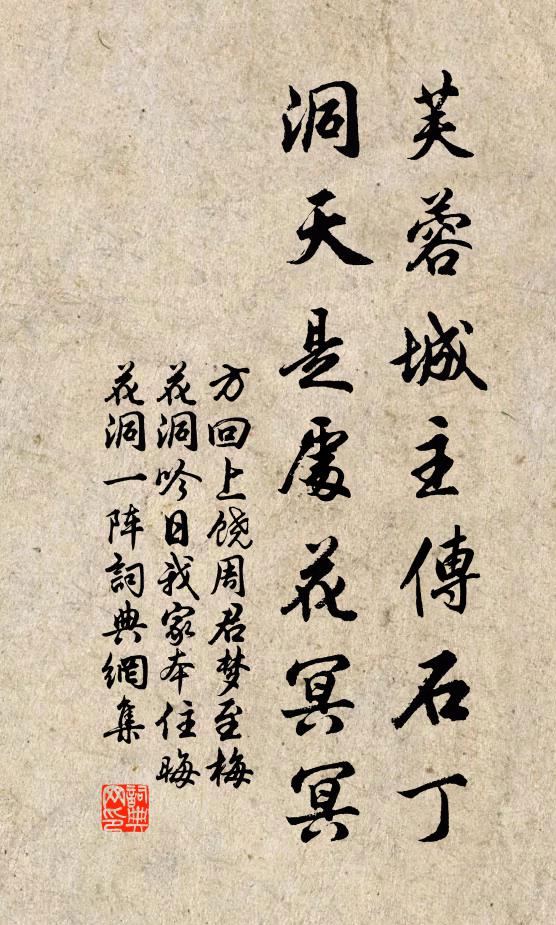 芙蓉城主傳石丁
洞天是處花冥冥
方回上饶周君梦至梅
花洞吟日我家本住晦
花洞一阵詞典網集
詞典
网印